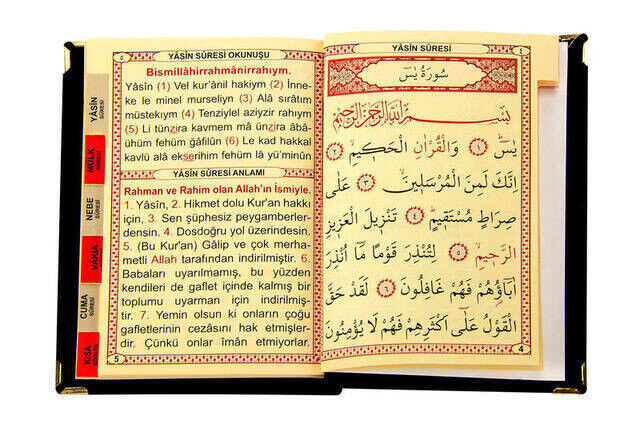 YÂSİN SÛRESİ
MÜLK SÛRESİ
NEBE SÛRESİ
VÂKIA
CUMA SÛRESİ
KISA SÛRELER
٥ YÂSİN SÛRESİ OKUNUŞU
Bismillâhirrahmânirrahıym.
Yâsîn (1) Vel kur'ânil hakiym (2) İnne-
ke le minel murseliyn (3) Alâ sırâtım
müstekıym (4) Tenziylel aziyzir rahıym
(5) Li tünzira kavmem mâ ünzira âbâ-
ühüm fehüm ğâfilûn (6) Le kad hakkal
kavlü alâ ekserihim fehüm lâ yü'minûn
YÂSİN SÛRESİ ANLAMI
Rahman ve Rahim olan Allah'ın İsmiyle.
1. Yâsîn, 2. Hikmet dolu Kur'an hakkı
için, 3. Sen şüphesiz peygamberler-
densin. 4. Dosdoğru yol üzerindesin.
5. (Bu Kur'an) Gâlip ve çok merha-
metli Allah tarafından indirilmiştir. 6.
Babaları uyarılmamış, bu yüzden
kendileri de gaflet içinde kalmış bir
toplumu uyarman için indirilmiş-
tir. 7. Yemin olsun ki onların çoğu
gafletlerinin cezâsını hak etmişler-
dir. Çünkü onlar îman etmiyorlar.
5
YÂSİN SÛRESİ ٤
سُورَةُ يٰسٓ
بِسْمِ اللّٰهِ الرَّحْمٰنِ الرَّحِيمِ
يٰسٓ ﴿١﴾ وَالْقُرْاٰنِ الْحَكِيمِ ﴿٢﴾
اِنَّكَ لَمِنَ الْمُرْسَلِينَ ﴿٣﴾ عَلٰى
صِرَاطٍ مُسْتَقِيمٍ ﴿٤﴾ تَنْزِيلَ الْعَزِيزِ
الرَّحِيمِ ﴿٥﴾ لِتُنْذِرَ قَوْمًا مَٓا اُنْذِرَ
اٰبَٓاؤُ۬هُمْ فَهُمْ غَافِلُونَ ﴿٦﴾ لَقَدْ حَقَّ
الْقَوْلُ عَلٰٓى اَكْثَرِهِمْ فَهُمْ لَا يُؤْمِنُونَ
4